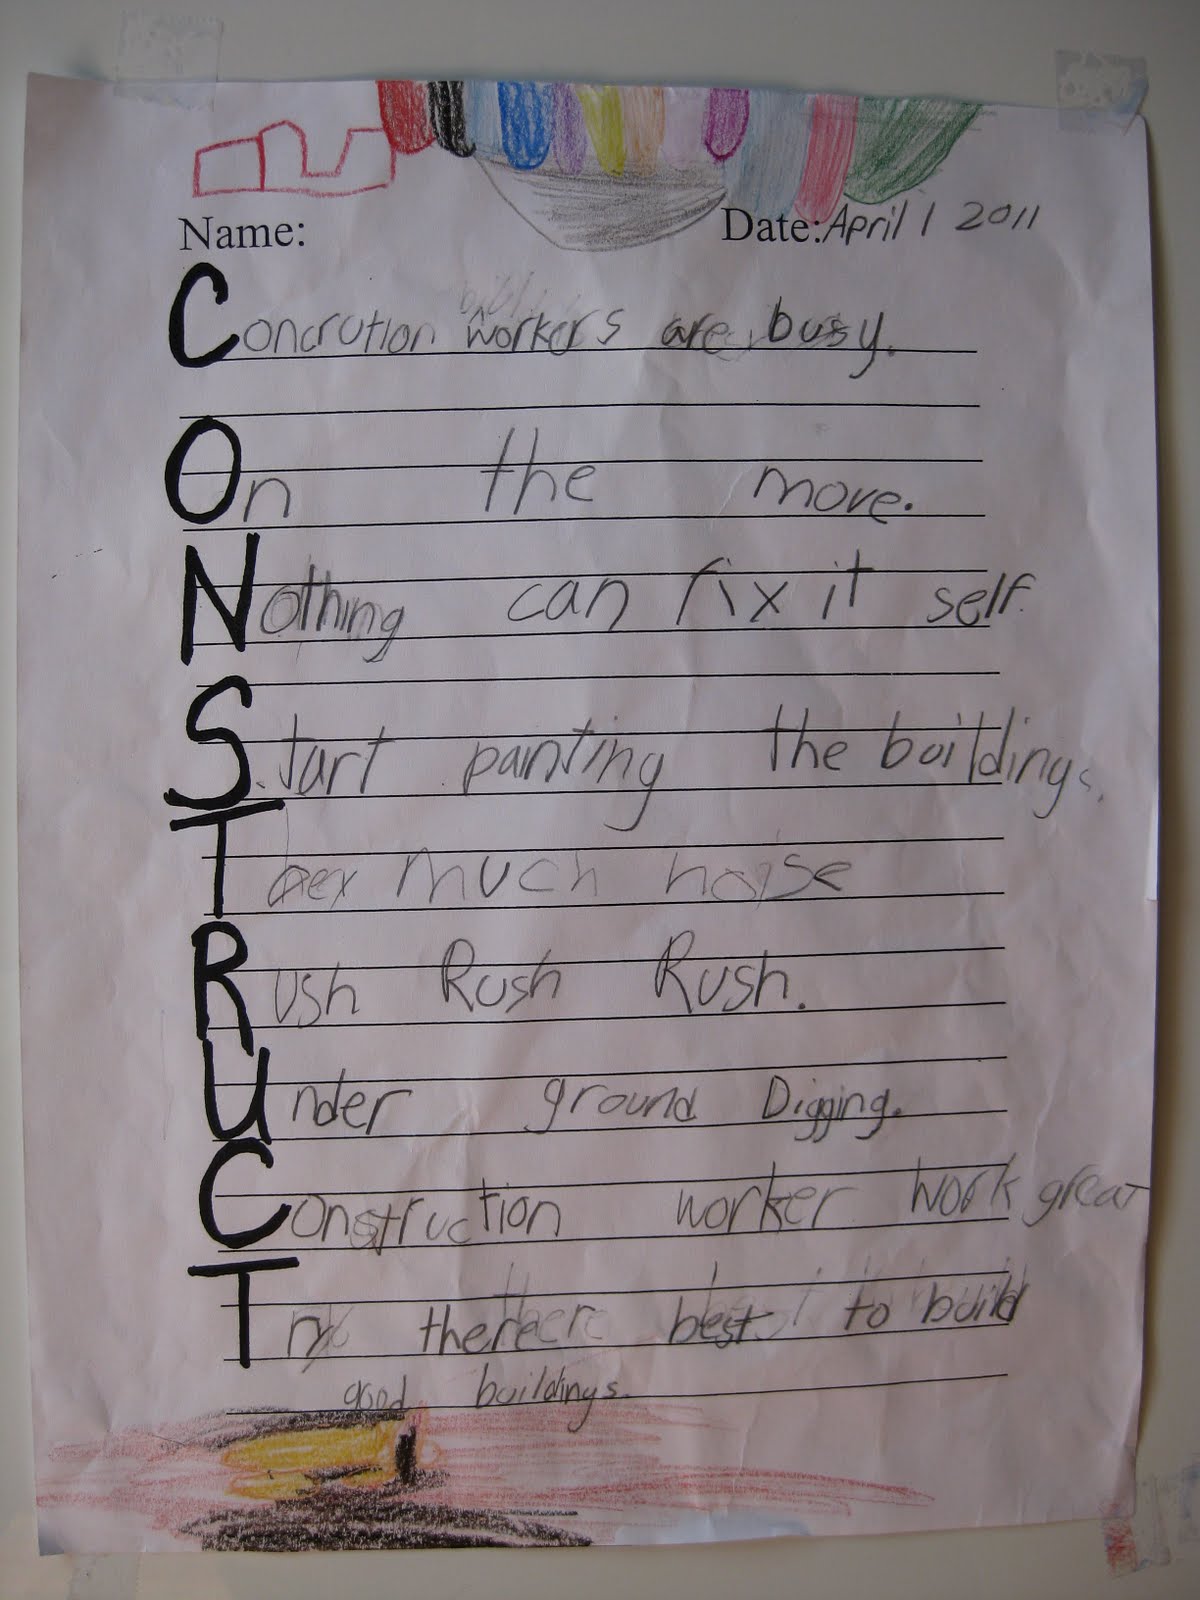 Name: Date: April 1 2011
Concrution workers are busy.
On the move.
Nothing can fix it self.
Start painting the buildings.
much noise
Rush Rush Rush.
Under ground Digging.
Construction worker work great
Try there best to build
good buildings.